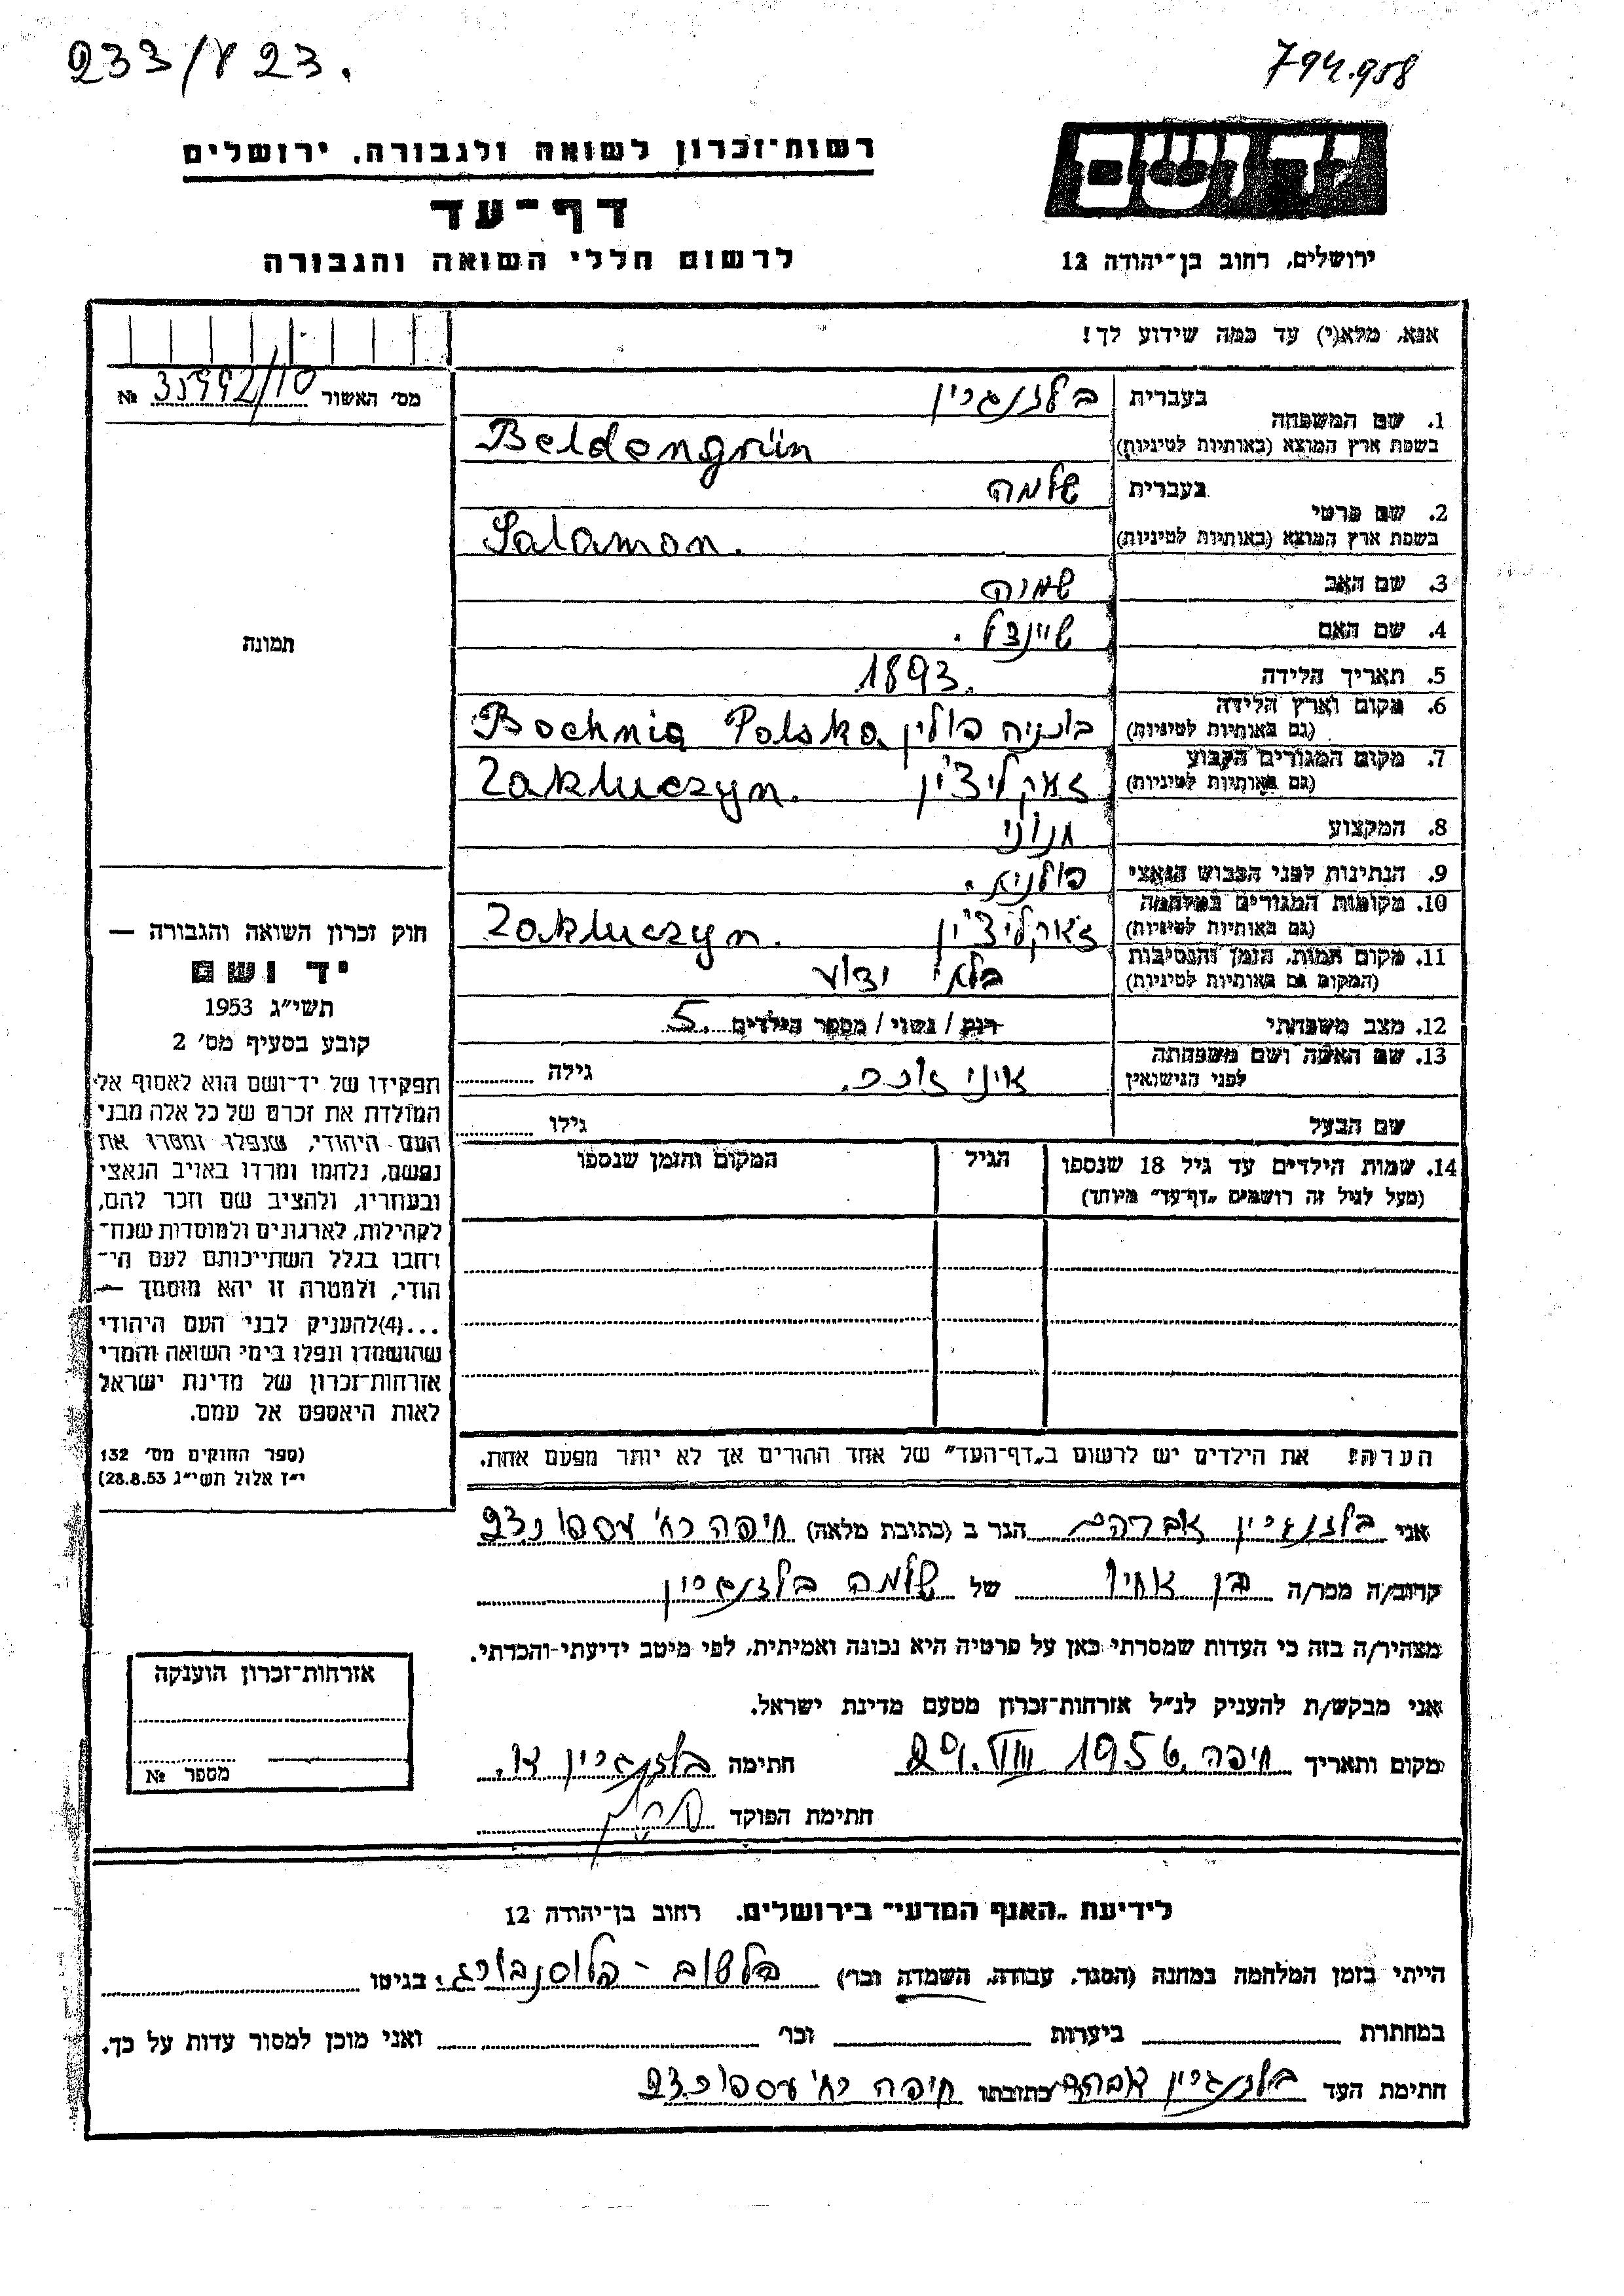 233/ 23.
794.958
ידושם
רשות־זכרון לשואה ולגבורה, ירושלים
דף־עד
לרשום חללי השואה והגבורה
ירושלים, רחוב בן־יהודה 12
אנא, מלא(י) עד כמה שידוע לך!
מס׳ האשור 35992/10 №
תמונה
1. שם המשפחה
בעברית בלדנגרין
בשפת ארץ המוצא (באותיות לטיניות) Beldengrün
2. שם פרטי
בעברית שלמה
בשפת ארץ המוצא (באותיות לטיניות) Salamon.
3. שם האב שמחה
4. שם האם שיינדל.
5. תאריך הלידה 1893.
6. מקום וארץ הלידה
(גם באותיות לטיניות) בוכניה פולין Bochnia Polska
7. מקום המגורים הקבוע
(גם באותיות לטיניות) זאקליצ׳ין Zakluczyn.
8. המקצוע חנוני
9. הנתינות לפני הכבוש הנאצי פולנית.
10. מקומות המגורים במלחמה
(גם באותיות לטיניות) זאקליצ׳ין Zakluczyn.
11. מקום המות, הזמן והנסיבות
(המקום גם באותיות לטיניות) בלתי ידוע
12. מצב משפחתי רוק / נשוי / מספר הילדים 5.
13. שם האשה ושם משפחתה
לפני הנישואין גילה
שם הבעל גילו
14. שמות הילדים עד גיל 18 שנספו
(מעל לגיל זה רושמים „דף־עד" מיוחד)
הגיל
המקום והזמן שנספו
חוק זכרון השואה והגבורה —
יד ושם
תשי״ג 1953
קובע בסעיף מס׳ 2
תפקידו של יד־ושם הוא לאסוף אל
המולדת את זכרם של כל אלה מבני
העם היהודי, שנפלו ומסרו את
נפשם, נלחמו ומרדו באויב הנאצי
ובעוזריו, ולהציב שם וזכר להם,
לקהילות, לארגונים ולמוסדות שנח־
רחבו בגלל השתייכותם לעם הי־
הודי, ולמטרה זו יהא מוסמך —
...(4)להעניק לבני העם היהודי
שהושמדו ונפלו בימי השואה והמרי
אזרחות־זכרון של מדינת ישראל
לאות היאספם אל עמם.
(ספר החוקים מס׳ 132
י״ז אלול תשי״ג 28.8.53)
הערה! את הילדים יש לרשום ב„דף־העד" של אחד ההורים אך לא יותר מפעם אחת.
אני בלדנגרין אברהם הגר ב (כתובת מלאה) חיפה רח׳ 23
קרוב/ה מכר/ה בן אחיו של שלמה בלדנגרין
מצהיר/ה בזה כי העדות שמסרתי כאן על פרטיה היא נכונה ואמיתית, לפי מיטב ידיעתי והכרתי.
אני מבקש/ת להעניק לנ״ל אזרחות־זכרון מטעם מדינת ישראל.
מקום ותאריך חיפה 29.VIII 1956 חתימה בלדנגרין
חתימת הפוקד
אזרחות־זכרון הוענקה
מספר №
לידיעת „האגף המדעי" בירושלים. רחוב בן־יהודה 12
הייתי בזמן המלחמה במחנה (הסגר, עבודה, השמדה וכו׳) פלשוב - פלוסנבורג. בגיטו
במחתרת ביערות וכו׳ ואני מוכן למסור עדות על כך.
חתימת העד בלדנגרין אברהם כתובתו חיפה רח׳ 23